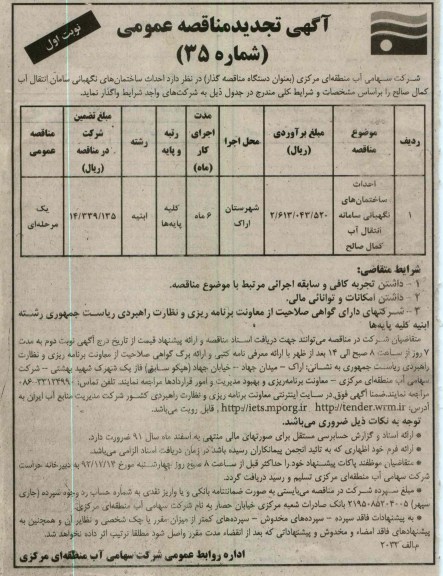 نوبت اول
آگهی تجدیدمناقصه عمومی
(شماره ۳۵)
شرکت سهامی آب منطقه‌ای مرکزی (بعنوان دستگاه مناقصه گذار) در نظر دارد احداث ساختمان‌های نگهبانی سامان انتقال آب
کمال صالح را براساس مشخصات و شرایط کلی مندرج در جدول ذیل به شرکت‌های واجد شرایط واگذار نماید.
ردیف | موضوع مناقصه | مبلغ برآوردی (ریال) | محل اجرا | مدت اجرای کار (ماه) | رتبه و پایه | رشته | مبلغ تضمین شرکت در مناقصه (ریال) | مناقصه عمومی
۱ | احداث ساختمان‌های نگهبانی سامانه انتقال آب کمال صالح | ۲/۶۱۳/۰۴۳/۵۲۰ | شهرستان اراک | ۶ ماه | کلیه پایه‌ها | ابنیه | ۱۴/۳۳۹/۱۳۵ | یک مرحله‌ای
شرایط متقاضی:
۱ - داشتن تجربه کافی و سابقه اجرائی مرتبط با موضوع مناقصه.
۲ - داشتن امکانات و توانائی مالی.
۳ - شرکتهای دارای گواهی صلاحیت از معاونت برنامه ریزی و نظارت راهبردی ریاست جمهوری رشته
ابنیه کلیه پایه‌ها
متقاضیان شرکت در مناقصه می‌توانند جهت دریافت اسناد مناقصه و ارائه پیشنهاد قیمت از تاریخ درج آگهی نوبت دوم به مدت
۷ روز از ساعت ۸ صبح الی ۱۴ بعد از ظهر با ارائه معرفی نامه کتبی و ارائه برگ گواهی صلاحیت از معاونت برنامه ریزی و نظارت
راهبردی ریاست جمهوری به نشانی: اراک - میدان جهاد - خیابان جهاد (هپکو سابق) فاز یک شهرک شهید بهشتی - شرکت
سهامی آب منطقه‌ای مرکزی - معاونت برنامه‌ریزی و بهبود مدیریت و امور قراردادها مراجعه نمایند. تلفن تماس: ۳۳۱۲۴۹۹-۰۸۶
مراجعه نمایند.ضمنا آگهی فوق در سایت اینترنتی معاونت برنامه ریزی و نظارت راهبردی کشور شرکت مدیریت منابع آب ایران به
آدرس: http://iets.mporg.ir http://tender.wrm.ir , قابل رویت می‌باشد.
توجه به نکات ذیل ضروری می‌باشد.
* ارائه اسناد و گزارش حسابرسی مستقل برای صورتهای مالی منتهی به اسفند ماه سال ۹۱ ضرورت دارد.
* ارائه فرم خود اظهاری که به تائید انجمن پیمانکاران رسیده باشد در زمان دریافت اسناد الزامی می‌باشد.
* متقاضیان موظفند پاکات پیشنهاد خود را حداکثر قبل از ساعت ۸ صبح روز چهارشنبه مورخ ۹۲/۱۲/۱۴ به دبیرخانه حراست
شرکت سهامی آب منطقه‌ای مرکزی تسلیم و رسید دریافت گردد.
* مبلغ سپرده شرکت در مناقصه می‌بایستی به صورت ضمانتنامه بانکی و یا واریز نقدی به شماره حساب رد وجوه سپرده (جاری
سپهر) بانک صادرات شعبه مرکزی خیابان حصار به نام شرکت سهامی آب منطقه‌ای مرکزی.
* به پیشنهادات فاقد سپرده - سپرده‌های مخدوش - سپرده‌های کمتر از میزان مقرر یا چک شخصی و نظایر آن و همچنین به
پیشنهادهای فاقد امضاء و مخدوش و پیشنهاداتی که بعد از انقضاء مدت مقرر واصل شود مطلقا ترتیب اثر داده نخواهد شد.
م.الف ۲۰۳۲
اداره روابط عمومی شرکت سهامی آب منطقه‌ای مرکزی